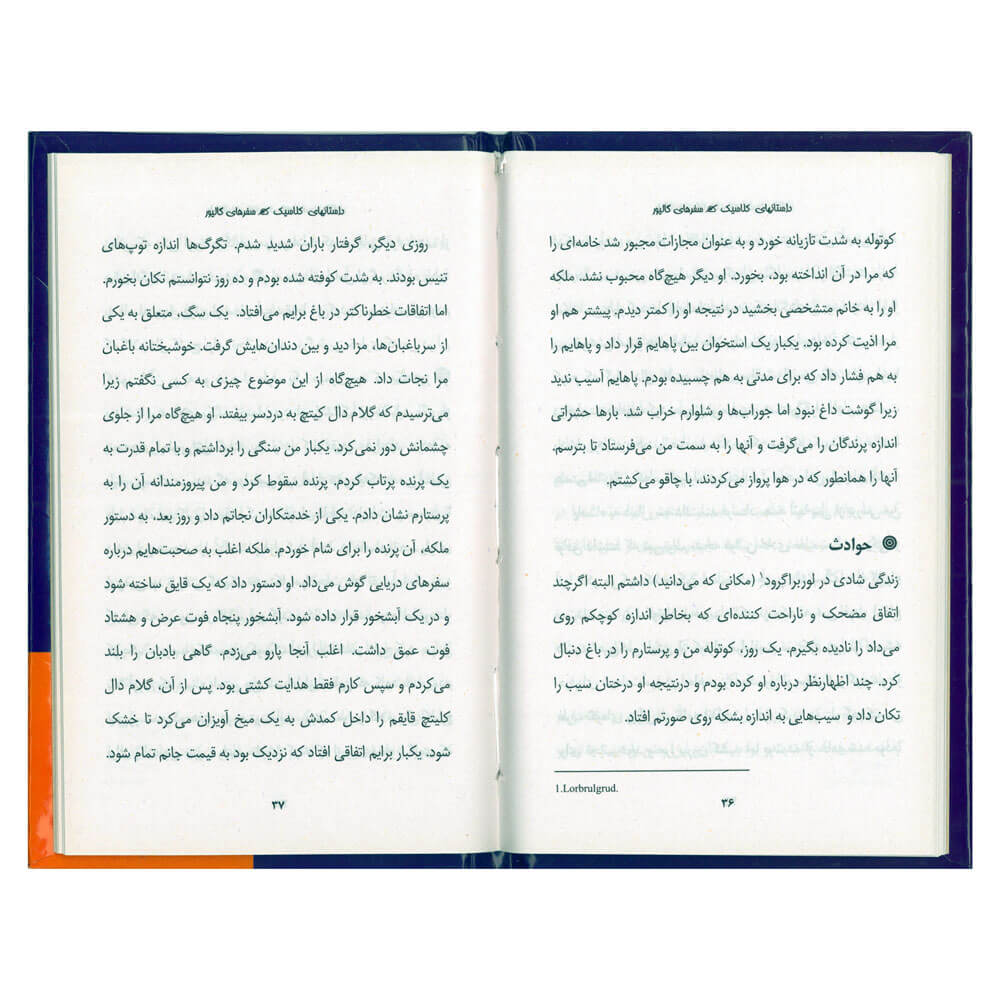 داستانهای کلاسیک سفرهای گالیور
کوتوله به شدت تازیانه خورد و به عنوان مجازات مجبور شد خامه‌ای را
که مرا در آن انداخته بود، بخورد. او دیگر هیچ‌گاه محبوب نشد. ملکه
او را به خانم متشخصی بخشید در نتیجه او را کمتر دیدم. پیشتر هم او
مرا اذیت کرده بود. یکبار یک استخوان بین پاهایم قرار داد و پاهایم را
به هم فشار داد که برای مدتی به هم چسبیده بودم. پاهایم آسیب ندید
زیرا گوشت داغ نبود اما جوراب‌ها و شلوارم خراب شد. بارها حشراتی
اندازه پرندگان را می‌گرفت و آنها را به سمت من می‌فرستاد تا بترسم.
آنها را همانطور که در هوا پرواز می‌کردند، با چاقو می‌کشتم.
حوادث
زندگی شادی در لوربراگرود¹ (مکانی که می‌دانید) داشتم البته اگرچند
اتفاق مضحک و ناراحت کننده‌ای که بخاطر اندازه کوچکم روی
می‌داد را نادیده بگیرم. یک روز، کوتوله من و پرستارم را در باغ دنبال
کرد. چند اظهارنظر درباره او کرده بودم و درنتیجه او درختان سیب را
تکان داد و سیب‌هایی به اندازه بشکه روی صورتم افتاد.
1.Lorbrulgrud.
۳۶
داستانهای کلاسیک سفرهای گالیور
روزی دیگر، گرفتار باران شدید شدم. تگرگ‌ها اندازه توپ‌های
تنیس بودند. به شدت کوفته شده بودم و ده روز نتوانستم تکان بخورم.
اما اتفاقات خطرناکتر در باغ برایم می‌افتاد. یک سگ، متعلق به یکی
از سرباغبان‌ها، مزا دید و بین دندان‌هایش گرفت. خوشبختانه باغبان
مرا نجات داد. هیچ‌گاه از این موضوع چیزی به کسی نگفتم زیرا
می‌ترسیدم که گلام دال کیتچ به دردسر بیفتد. او هیچ‌گاه مرا از جلوی
چشمانش دور نمی‌کرد. یکبار من سنگی را برداشتم و با تمام قدرت به
یک پرنده پرتاب کردم. پرنده سقوط کرد و من پیروزمندانه آن را به
پرستارم نشان دادم. یکی از خدمتکاران نجاتم داد و روز بعد، به دستور
ملکه، آن پرنده را برای شام خوردم. ملکه اغلب به صحبت‌هایم درباره
سفرهای دریایی گوش می‌داد. او دستور داد که یک قایق ساخته شود
و در یک آبشخور قرار داده شود. آبشخور پنجاه فوت عرض و هشتاد
فوت عمق داشت. اغلب آنجا پارو می‌زدم. گاهی بادبان را بلند
می‌کردم و سپس کارم فقط هدایت کشتی بود. پس از آن، گلام دال
کلیتچ قایقم را داخل کمدش به یک میخ آویزان می‌کرد تا خشک
شود. یکبار برایم اتفاقی افتاد که نزدیک بود به قیمت جانم تمام شود.
۳۷